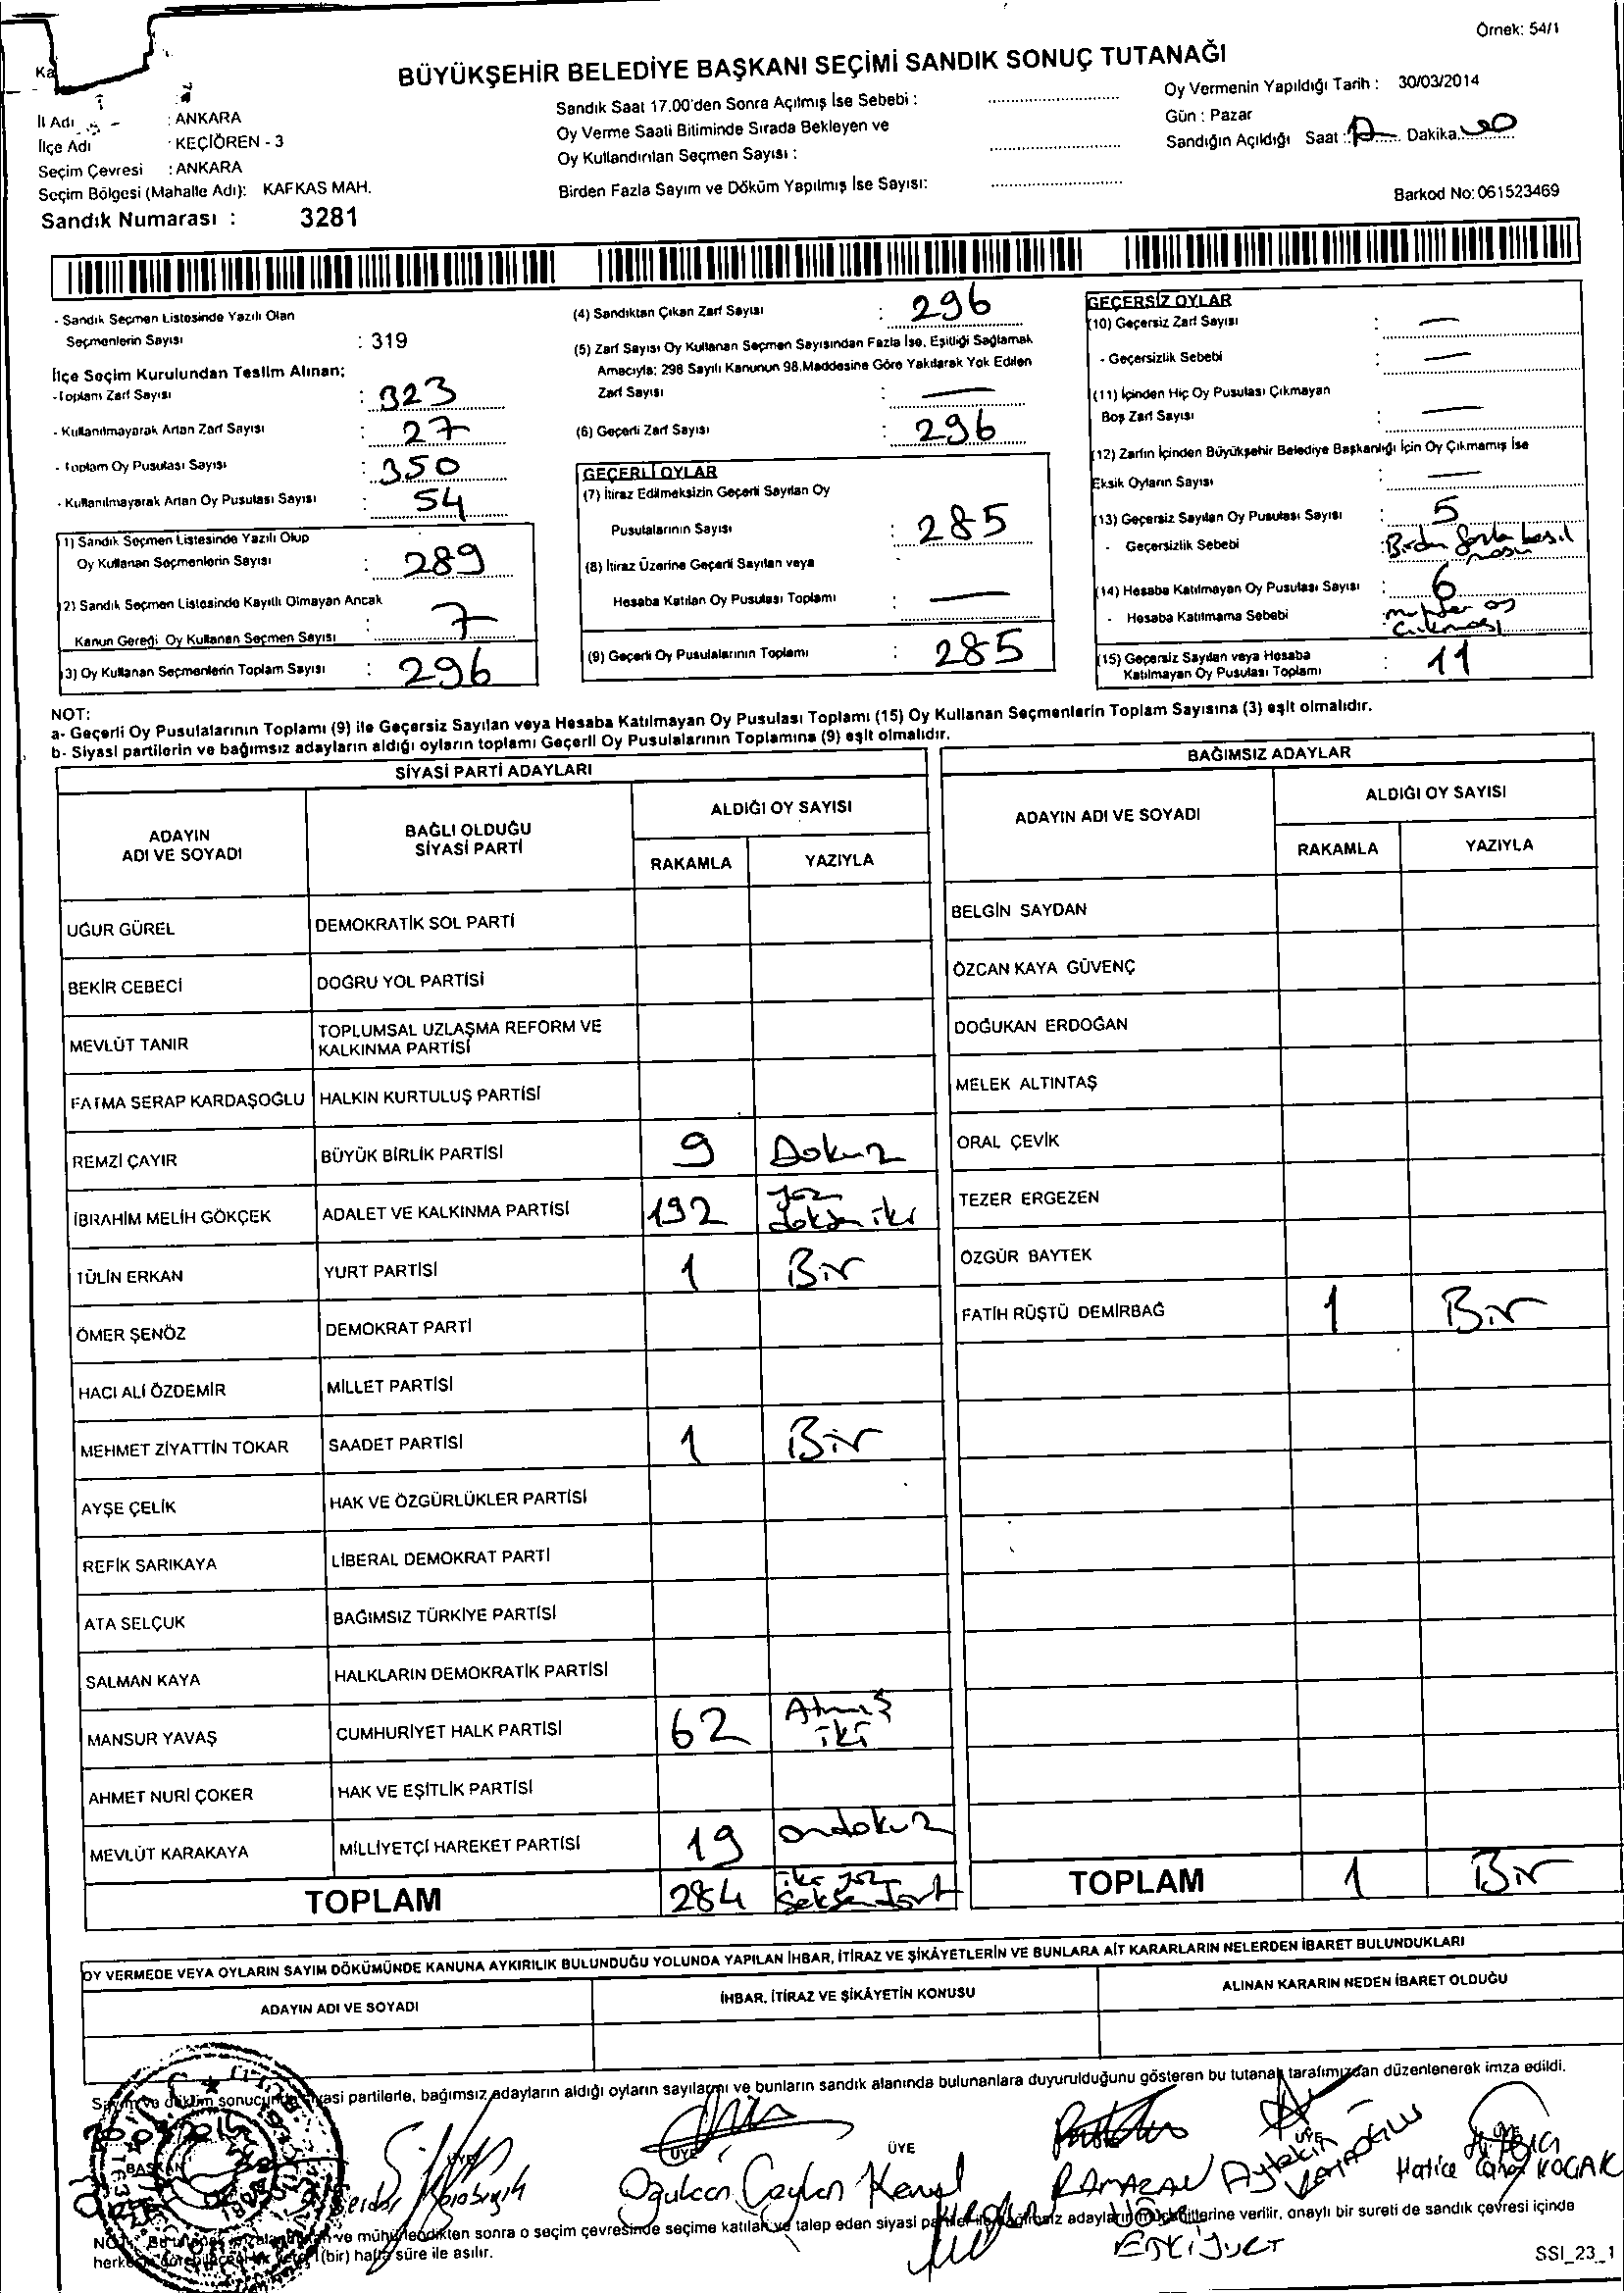 Örnek: 54/1
BÜYÜKŞEHİR BELEDİYE BAŞKANI SEÇİMİ SANDIK SONUÇ TUTANAĞI
İl Adı : ANKARA
İlçe Adı : KEÇİÖREN - 3
Seçim Çevresi : ANKARA
Seçim Bölgesi (Mahalle Adı): KAFKAS MAH.
Sandık Numarası : 3281
Sandık Saat 17.00'den Sonra Açılmış İse Sebebi :
Oy Verme Saati Bitiminde Sırada Bekleyen ve
Oy Kullandırılan Seçmen Sayısı :
Birden Fazla Sayım ve Döküm Yapılmış İse Sayısı:
Oy Vermenin Yapıldığı Tarih : 30/03/2014
Gün : Pazar
Sandığın Açıldığı Saat : 17 Dakika 00
Barkod No: 061523469
- Sandık Seçmen Listesinde Yazılı Olan
Seçmenlerin Sayısı : 319
İlçe Seçim Kurulundan Teslim Alınan;
- Toplam Zarf Sayısı : 323
- Kullanılmayarak Artan Zarf Sayısı : 27
- Toplam Oy Pusulası Sayısı : 350
- Kullanılmayarak Artan Oy Pusulası Sayısı : 54
1) Sandık Seçmen Listesinde Yazılı Olup
Oy Kullanan Seçmenlerin Sayısı : 289
2) Sandık Seçmen Listesinde Kayıtlı Olmayan Ancak
Kanun Gereği Oy Kullanan Seçmen Sayısı : 7
3) Oy Kullanan Seçmenlerin Toplam Sayısı : 296
(4) Sandıktan Çıkan Zarf Sayısı : 296
(5) Zarf Sayısı Oy Kullanan Seçmen Sayısından Fazla İse, Eşitliği Sağlamak
Amacıyla; 298 Sayılı Kanunun 98.Maddesine Göre Yakılarak Yok Edilen
Zarf Sayısı : —
(6) Geçerli Zarf Sayısı : 296
GEÇERLİ OYLAR
(7) İtiraz Edilmeksizin Geçerli Sayılan Oy
Pusulalarının Sayısı : 285
(8) İtiraz Üzerine Geçerli Sayılan veya
Hesaba Katılan Oy Pusulası Toplamı : —
(9) Geçerli Oy Pusulalarının Toplamı : 285
GEÇERSİZ OYLAR
(10) Geçersiz Zarf Sayısı : —
- Geçersizlik Sebebi : —
(11) İçinden Hiç Oy Pusulası Çıkmayan
Boş Zarf Sayısı : —
(12) Zarfın İçinden Büyükşehir Belediye Başkanlığı İçin Oy Çıkmamış İse
Eksik Oyların Sayısı : —
(13) Geçersiz Sayılan Oy Pusulası Sayısı : 5
- Geçersizlik Sebebi :
(14) Hesaba Katılmayan Oy Pusulası Sayısı : 6
- Hesaba Katılmama Sebebi :
(15) Geçersiz Sayılan veya Hesaba
Katılmayan Oy Pusulası Toplamı : 11
NOT:
a- Geçerli Oy Pusulalarının Toplamı (9) ile Geçersiz Sayılan veya Hesaba Katılmayan Oy Pusulası Toplamı (15) Oy Kullanan Seçmenlerin Toplam Sayısına (3) eşit olmalıdır.
b- Siyasi partilerin ve bağımsız adayların aldığı oyların toplamı Geçerli Oy Pusulalarının Toplamına (9) eşit olmalıdır.
SİYASİ PARTİ ADAYLARI
ADAYIN ADI VE SOYADI
BAĞLI OLDUĞU SİYASİ PARTİ
ALDIĞI OY SAYISI
RAKAMLA YAZIYLA
UĞUR GÜREL DEMOKRATİK SOL PARTİ
BEKİR CEBECİ DOĞRU YOL PARTİSİ
MEVLÜT TANIR TOPLUMSAL UZLAŞMA REFORM VE KALKINMA PARTİSİ
FATMA SERAP KARDAŞOĞLU HALKIN KURTULUŞ PARTİSİ
REMZİ ÇAYIR BÜYÜK BİRLİK PARTİSİ 9 Dokuz
İBRAHİM MELİH GÖKÇEK ADALET VE KALKINMA PARTİSİ 192 yüz doksan iki
TÜLİN ERKAN YURT PARTİSİ 1 Bir
ÖMER ŞENÖZ DEMOKRAT PARTİ
HACI ALİ ÖZDEMİR MİLLET PARTİSİ
MEHMET ZİYATTİN TOKAR SAADET PARTİSİ 1 Bir
AYŞE ÇELİK HAK VE ÖZGÜRLÜKLER PARTİSİ
REFİK SARIKAYA LİBERAL DEMOKRAT PARTİ
ATA SELÇUK BAĞIMSIZ TÜRKİYE PARTİSİ
SALMAN KAYA HALKLARIN DEMOKRATİK PARTİSİ
MANSUR YAVAŞ CUMHURİYET HALK PARTİSİ 62 Atmış iki
AHMET NURİ ÇOKER HAK VE EŞİTLİK PARTİSİ
MEVLÜT KARAKAYA MİLLİYETÇİ HAREKET PARTİSİ 19 ondokuz
TOPLAM 284 iki yüz seksen dört
BAĞIMSIZ ADAYLAR
ADAYIN ADI VE SOYADI
ALDIĞI OY SAYISI
RAKAMLA YAZIYLA
BELGİN SAYDAN
ÖZCAN KAYA GÜVENÇ
DOĞUKAN ERDOĞAN
MELEK ALTINTAŞ
ORAL ÇEVİK
TEZER ERGEZEN
ÖZGÜR BAYTEK
FATİH RÜŞTÜ DEMİRBAĞ 1 Bir
TOPLAM 1 Bir
OY VERMEDE VEYA OYLARIN SAYIM DÖKÜMÜNDE KANUNA AYKIRILIK BULUNDUĞU YOLUNDA YAPILAN İHBAR, İTİRAZ VE ŞİKÂYETLERİN VE BUNLARA AİT KARARLARIN NELERDEN İBARET BULUNDUKLARI
ADAYIN ADI VE SOYADI
İHBAR, İTİRAZ VE ŞİKÂYETİN KONUSU
ALINAN KARARIN NEDEN İBARET OLDUĞU
partilerle, bağımsız adayların aldığı oyların sayılarını ve bunların sandık alanında bulunanlara duyurulduğunu gösteren bu tutanak tarafımızdan düzenlenerek imza edildi.
ÜYE ÜYE
Oğulcan Ceylan RAMAZAN Aytekin Hatice KOÇAK
ve mühürlendikten sonra o seçim çevresinde seçime katılan ve talep eden siyasi adayların verilir, onaylı bir sureti de sandık çevresi içinde
(bir) hafta süre ile asılır.
SSI_23_1